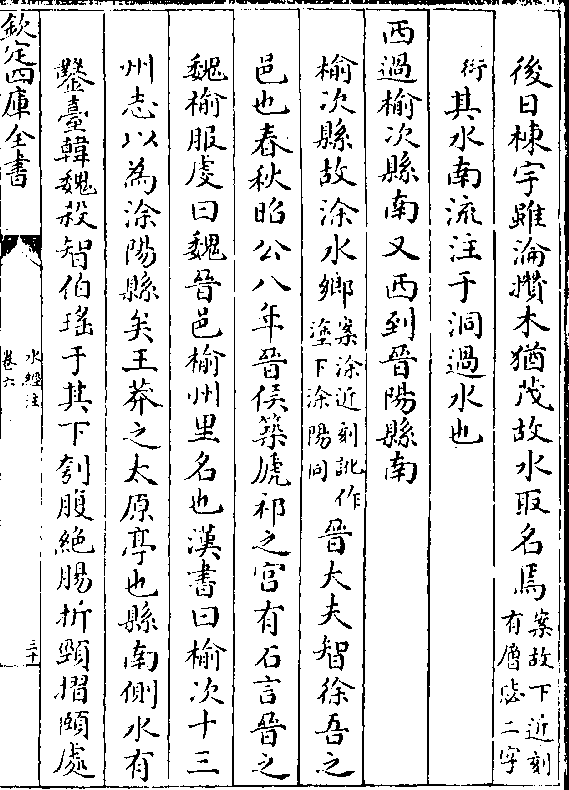 後日棟宇雖淪攢木猶茂故水取名焉案故下近刻有層毖二字
衍其水南流注于洞過水也
西過榆次縣南又西到晉陽縣南
榆次縣故涂水鄉案涂近刻訛作塗下涂陽同晉大夫智徐吾之
邑也春秋昭公八年晉侯築虒祁之宫有石言晉之
魏榆服䖍曰魏晉邑榆州里名也漢書曰榆次十三
州志以為涂陽縣矣王莽之太原亭也縣南側水有
鑿臺韓魏殺智伯瑤于其下刳腹絶腸折頸摺頤處
欽定四庫全書
水經注
卷六
三十